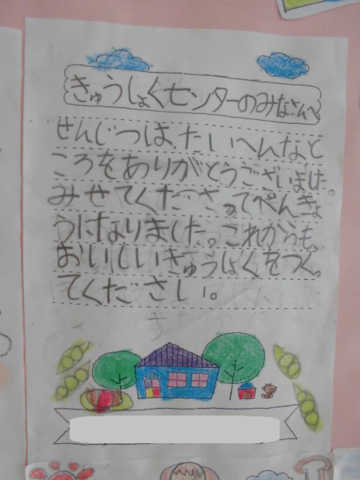 きゅうしょくセンターのみなさんへ
せんじつは、たいへんなと
ころをありがとうございました。
みせてくださってべんきょ
うになりました。これからも、
おいしいきゅうしょくをつくっ
てください。